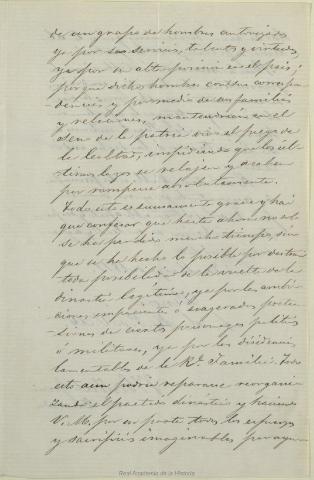 de un grupo de hombres autorizados
ya por sus servicios, talentos y virtudes,
ya por su alta posición en el país;
porque dichos hombres con su correspon-
dencia y por medio de sus familias
y relaciones, mantendrían en el
seno de la patria vivo el fuego de
la lealtad, impidiendo que los úl-
timos lazos se relajen y acaben
por romperse absolutamente.
Todo esto es sumamente grave y hay
que confesar que hasta ahora no solo
se ha perdido mucho tiempo, sino
que se ha hecho lo posible por destruir
toda posibilidad de la vuelta de la
dinastía legítima, ya por las ambi-
ciones impaciente ó exagerados preten-
siones de ciertos personages políticos
ó militares, ya por las disidencias
lamentables de la Rl. Familia. Todo
esto aun podría repararse reorgani-
zando el partido dinástico y haciendo
V. M. por su parte todos los esfuerzos
y sacrificios imaginables por
Real Academia de la Historia